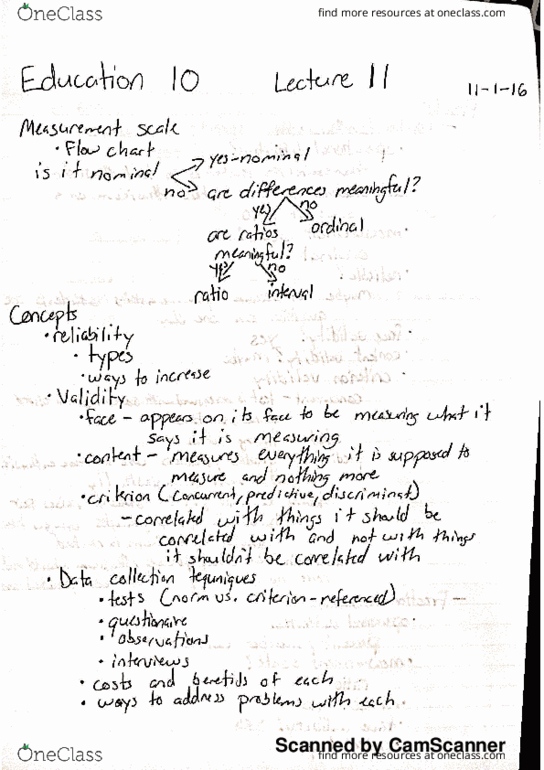 OneClass
find more resources at oneclass.com
Education 10 Lecture 11 11-1-16
Measurement scale
• Flow chart
is it nominal
yes-nominal
no are differences meaningful?
yes no
are ratios meaningful?
ordinal
yes no
ratio interval
Concepts
• reliability
• types
• ways to increase
• Validity
• face - appears on its face to be measuring what it
says it is measuring
• content - measures everything it is supposed to
measure and nothing more
• criterion (concurrent, predictive, discriminat)
- correlated with things it should be
correlated with and not with things
it shouldn't be correlated with
• Data collection tequniques
• tests (norm vs. criterion-referenced)
• questionaire
• observations
• interviews
• costs and benefits of each
• ways to address problems with each
Scanned by CamScanner
OneClass
find more resources at oneclass.com